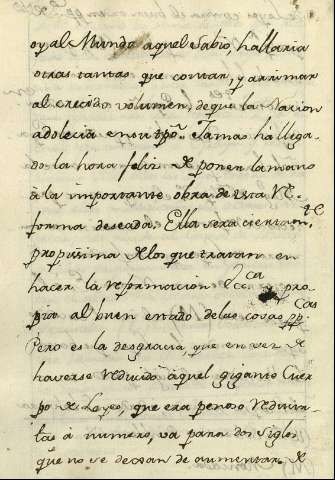 oy al Mundo aquel Sabio, hallaria
otras tantas que contar, y arrimar
al crecido volumen, de que la Nacion
adolecia en su tpõ. Jamas ha llega-
do la hora feliz de poner la mano
à la importante obra de esta Re-
forma deseada. Ella sera ciertam.te
propissima de los que tratan en
hacer la reformacion y pro-
pia al buen estado de las cosas pp.cas
Pero es la desgracia que en vez de
haverse reducido àquel gigante Cuer-
po de Leyes, que era penoso reducir-
las à numero, va para dos siglos
que no se dexan de aumentar. de